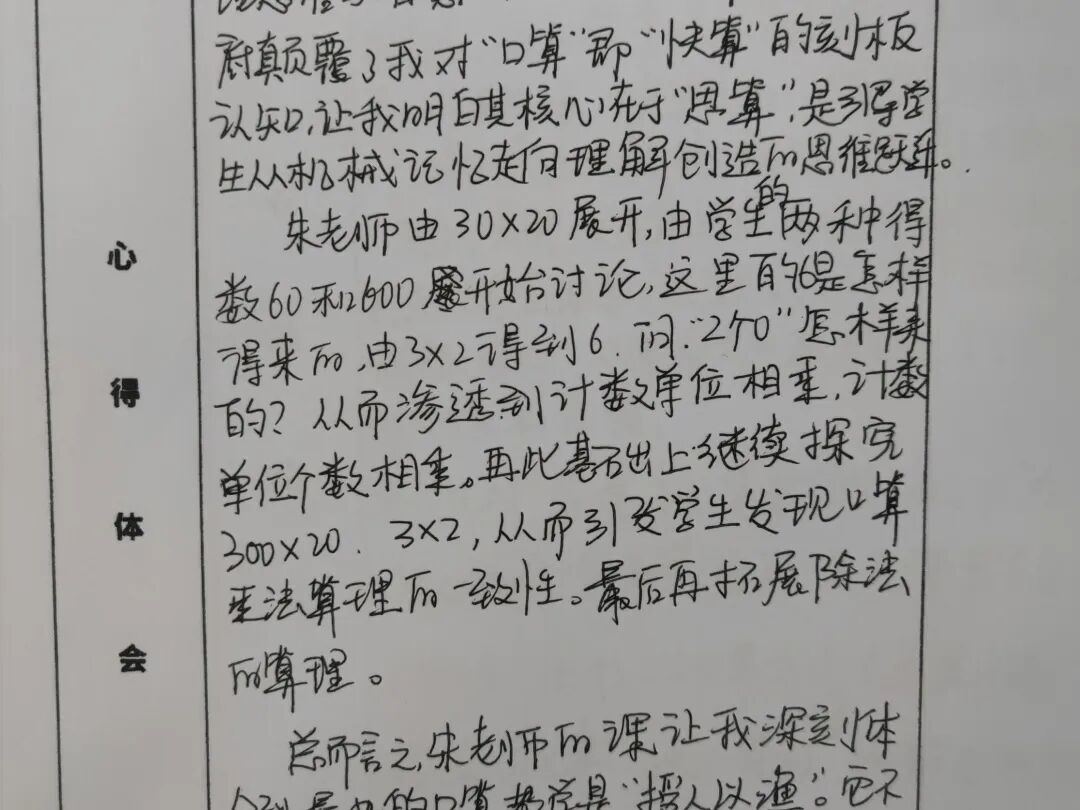 府颠覆了我对“口算”即“快算”的刻板
认知,让我明白其核心在于“思算”,是引导学
生从机械记忆走向理解创造的思维跃迁。
朱老师由30×20展开,由学生的两种得
数60和600开始讨论,这里的6是怎样
得来的,由3×2得到6.而“2个0”怎样来
的?从而渗透到计数单位相乘,计数
单位个数相乘。再此基础上继续探究
300×20.3×2,从而引发学生发现口算
乘法算理的一致性。最后再拓展除法
的算理。
总而言之,朱老师的课让我深刻体
的口算 是“授人以渔”。它不
心
得
体
会